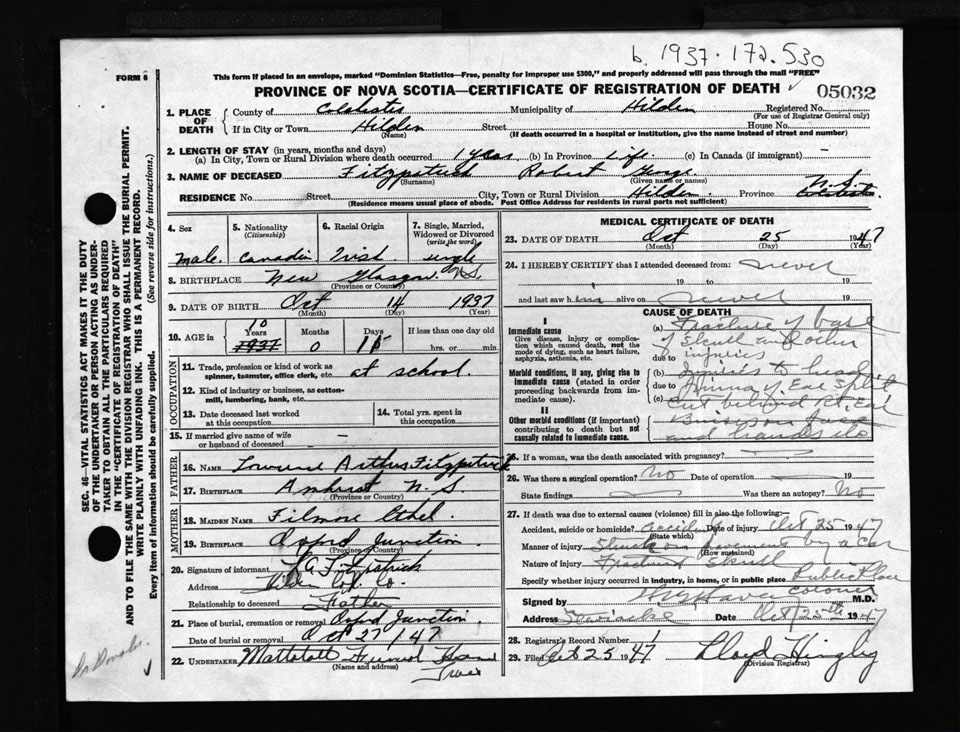 b. 1937-172.530
FORM 6
This form if placed in an envelope, marked "Dominion Statistics—Free, penalty for improper use $300," and properly addressed will pass through the mail "FREE"
PROVINCE OF NOVA SCOTIA—CERTIFICATE OF REGISTRATION OF DEATH
05032
1. PLACE OF DEATH County of Colchester Municipality of Hilden Registered No.
(For use of Registrar General only)
If in City or Town Hilden Street House No.
(Name) (If death occurred in a hospital or institution, give the name instead of street and number)
2. LENGTH OF STAY (in years, months and days)
(a) In City, Town or Rural Division where death occurred 1 year (b) In Province Life (c) In Canada (if immigrant) —
3. NAME OF DECEASED Fitzpatrick Robert George
(Surname) (Given name or names)
RESIDENCE No. Street City, Town or Rural Division Hilden Province N.S.
(Residence means usual place of abode. Post Office Address for residents in rural parts not sufficient)
4. Sex 5. Nationality 6. Racial Origin 7. Single, Married, Widowed or Divorced
(Citizenship) (write the word)
Male Canadin Irish single
8. BIRTHPLACE New Glasgow N.S.
(Province or County)
9. DATE OF BIRTH Oct 14 1937
(Month) (Day) (Year)
10. AGE in Years Months Days If less than one day old
10 1937 0 11 hrs. or min.
OCCUPATION
11. Trade, profession or kind of work as spinner, teamster, office clerk, etc. at school.
12. Kind of industry or business, as cotton-mill, lumbering, bank, etc.
13. Date deceased last worked at this occupation
14. Total yrs. spent in this occupation
15. If married give name of wife or husband of deceased —
FATHER
16. NAME Arthur Fitzpatrick
17. BIRTHPLACE Amherst N.S.
(Province or Country)
MOTHER
18. MAIDEN NAME Filmore Ethel
19. BIRTHPLACE Oxford Junction
(Province or Country)
20. Signature of informant L A Fitzpatrick
Address Hilden Col. Co.
Relationship to deceased Father
21. Place of burial, cremation or removal Oxford Junction
Date of burial or removal Oct 27 / 47
22. UNDERTAKER Mattatall Funeral Home
(Name and address) Truro
MEDICAL CERTIFICATE OF DEATH
23. DATE OF DEATH Oct 25 1947
(Month) (Day) (Year)
24. I HEREBY CERTIFY that I attended deceased from: never
19 to 19
and last saw him alive on never 19
CAUSE OF DEATH
I
Immediate cause
Give disease, injury or complication which caused death, not the mode of dying, such as heart failure, asphyxia, asthenia, etc.
(a) Fracture of base
of Skull and other
due to injuries
Morbid conditions, if any, giving rise to immediate cause (stated in order proceeding backwards from immediate cause).
(b) injuries to head
due to of Ear Split
(c) cut behind Rt. Ear
II
Other morbid conditions (if important) contributing to death but not causally related to immediate cause.
face
and hands
25. If a woman, was the death associated with pregnancy?
26. Was there a surgical operation? No Date of operation 19
State findings Was there an autopsy? No
27. If death was due to external causes (violence) fill in also the following:—
Accident, suicide or homicide? accident Date of injury Oct 25 1947
(State which)
Manner of injury Struck on pavement by a car
(How sustained)
Nature of injury Fractured Skull
Specify whether injury occurred in industry, in home, or in public place Public Place
Signed by Coroner M.D.
Address Date Oct 25th 1947
28. Registrar's Record Number 1
29. Filed Oct 25 1947 Lloyd Hingley
(Division Registrar)
SEC. 46—VITAL STATISTICS ACT MAKES IT THE DUTY
OF THE UNDERTAKER OR PERSON ACTING AS UNDER-
TAKER TO OBTAIN ALL THE PARTICULARS REQUIRED
IN THE "CERTIFICATE OF REGISTRATION OF DEATH"
AND TO FILE THE SAME WITH THE DIVISION REGISTRAR WHO SHALL ISSUE THE BURIAL PERMIT.
WRITE PLAINLY WITH UNFADING INK. THIS IS A PERMANENT RECORD.
Every item of information should be carefully supplied. (See reverse side for instructions.)